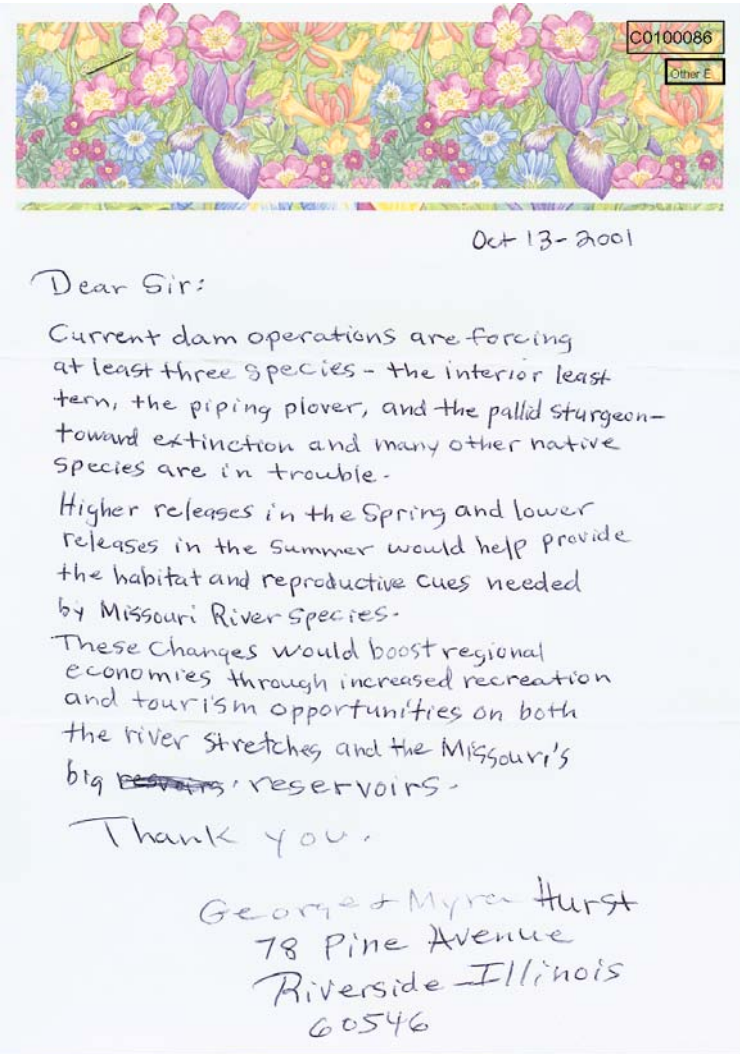 C0100086
Other E
Oct 13-2001
Dear Sir:
Current dam operations are forcing
at least three species - the interior least
tern, the piping plover, and the pallid sturgeon-
toward extinction and many other native
species are in trouble.
Higher releases in the Spring and lower
releases in the summer would help provide
the habitat and reproductive cues needed
by Missouri River species.
These Changes would boost regional
economies through increased recreation
and tourism opportunities on both
the river stretches and the Missouri's
big reservoirs.
Thank you.
George & Myra Hurst
78 Pine Avenue
Riverside-Illinois
60546